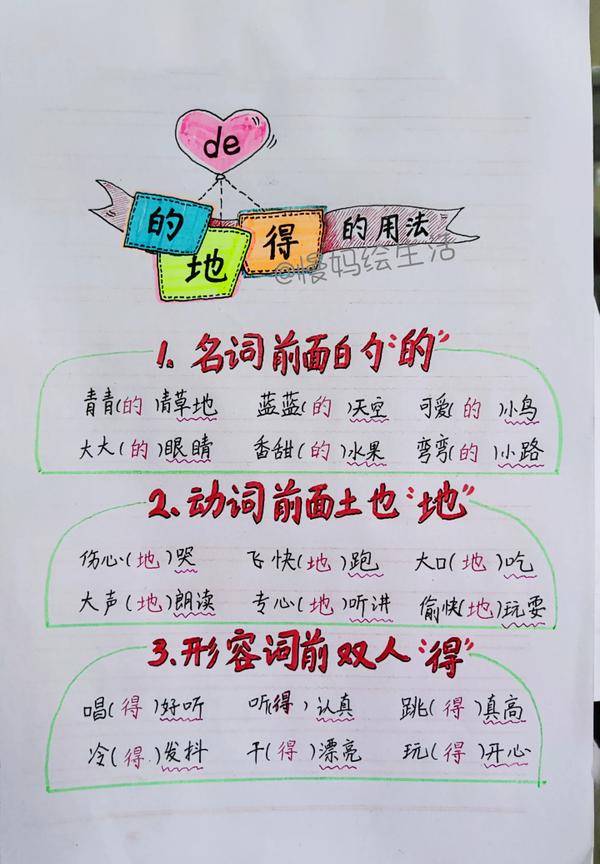 de
的 地 得 的用法
@慢妈绘生活
1. 名词前面白勺"的"
青青(的)清草地 蓝蓝(的)天空 可爱(的)小鸟
大大(的)眼睛 香甜(的)水果 弯弯(的)小路
2. 动词前面土也"地"
伤心(地)哭 飞快(地)跑 大口(地)吃
大声(地)朗读 专心(地)听讲 愉快(地)玩耍
3. 形容词前双人"得"
唱(得)好听 听(得)认真 跳(得)真高
冷(得)发抖 干(得)漂亮 玩(得)开心